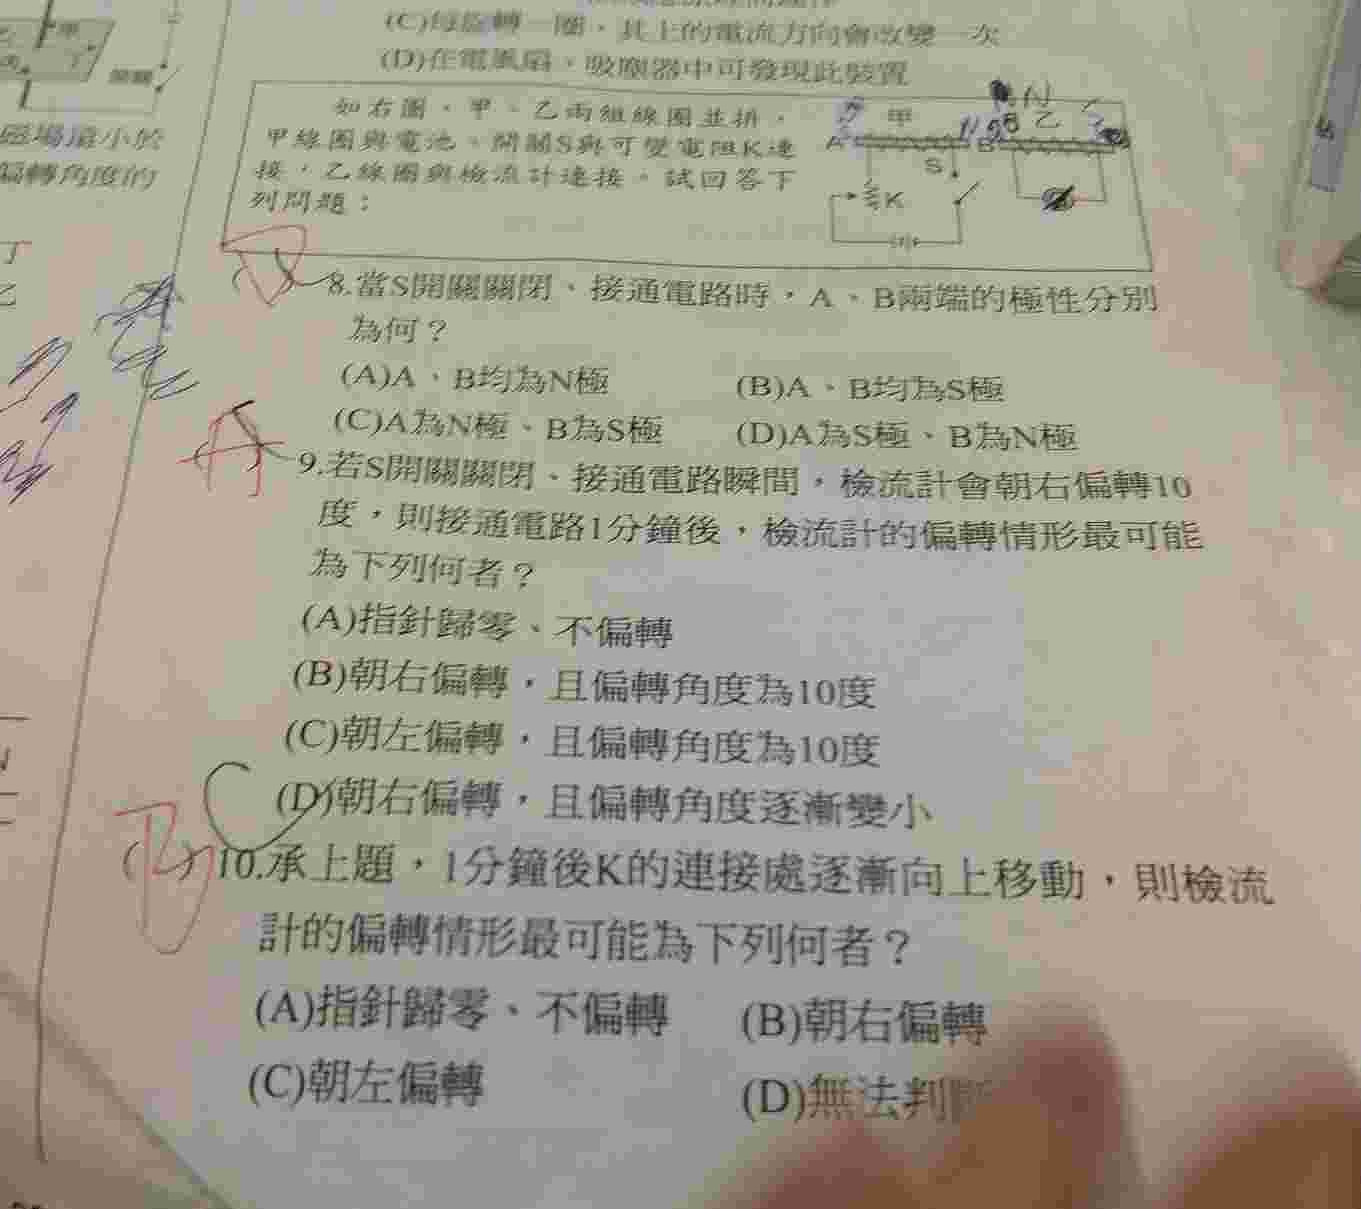 (C)每旋轉一圈，其上的電流方向會改變一次
(D)在電風扇、吸塵器中可發現此裝置
甲
丁
開關
磁場須小於
偏轉角度的
丁
乙
如右圖，甲、乙兩組線圈並排，
甲線圈與電池、開關S與可變電阻K連
接，乙線圈與檢流計連接。試回答下
列問題：
N
甲
乙
A
B
S
K
8.當S開關關閉、接通電路時，A、B兩端的極性分別
為何？
(A)A、B均為N極
(B)A、B均為S極
(C)A為N極、B為S極
(D)A為S極、B為N極
9.若S開關關閉、接通電路瞬間，檢流計會朝右偏轉10
度，則接通電路1分鐘後，檢流計的偏轉情形最可能
為下列何者？
(A)指針歸零、不偏轉
(B)朝右偏轉，且偏轉角度為10度
(C)朝左偏轉，且偏轉角度為10度
(D)朝右偏轉，且偏轉角度逐漸變小
10.承上題，1分鐘後K的連接處逐漸向上移動，則檢流
計的偏轉情形最可能為下列何者？
(A)指針歸零、不偏轉
(B)朝右偏轉
(C)朝左偏轉
(D)無法判斷